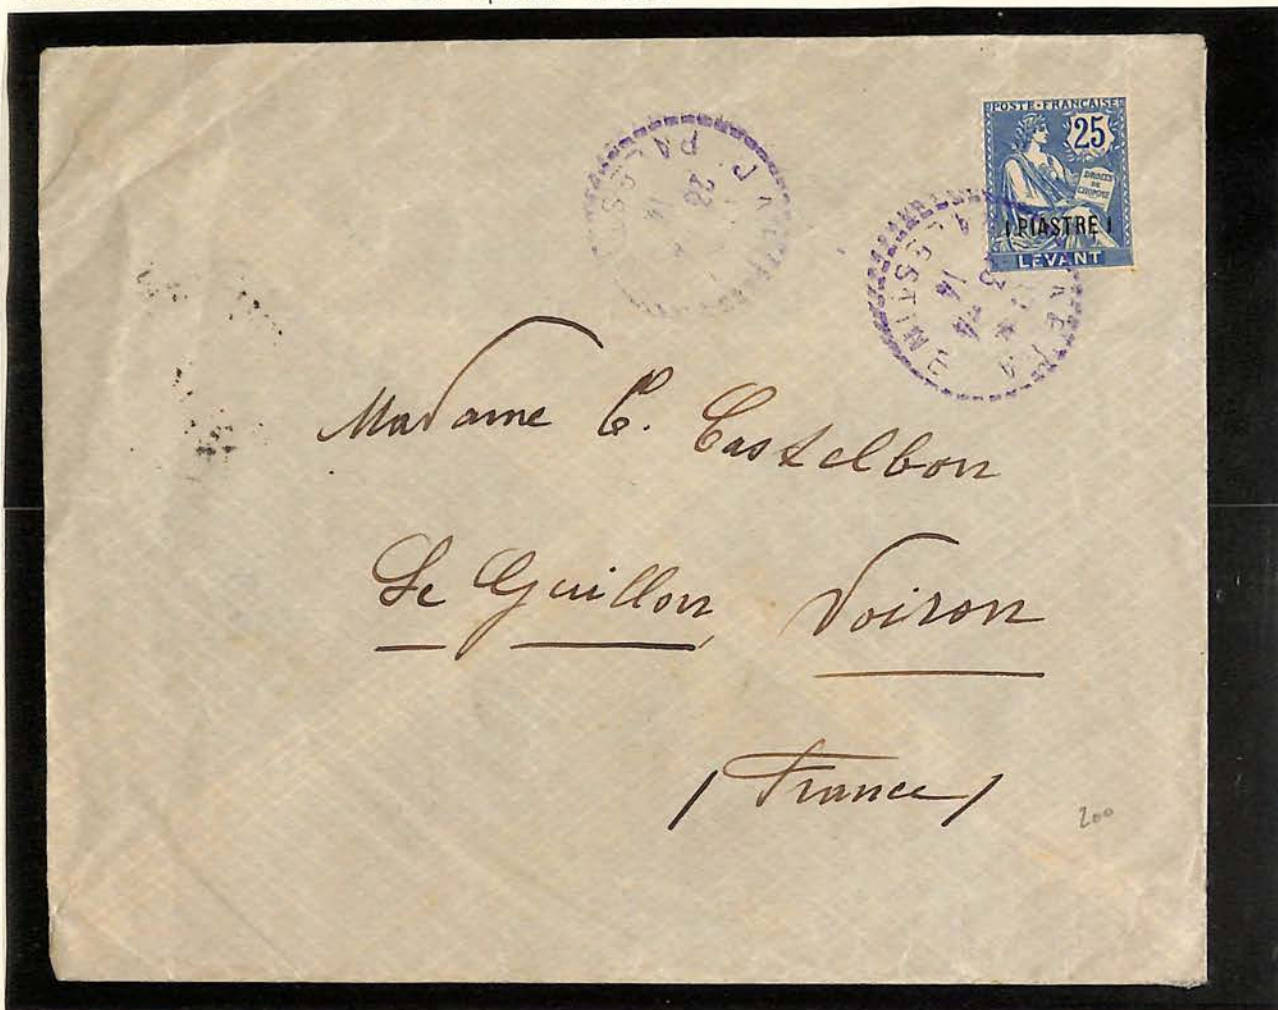 POSTE FRANÇAISE
25
DROITS
DE
L'HOMME
1 PIASTRE 1
LEVANT
PALESTINE
14
Madame C. Castelbon
Le Guillon, Voiron
(France)
200